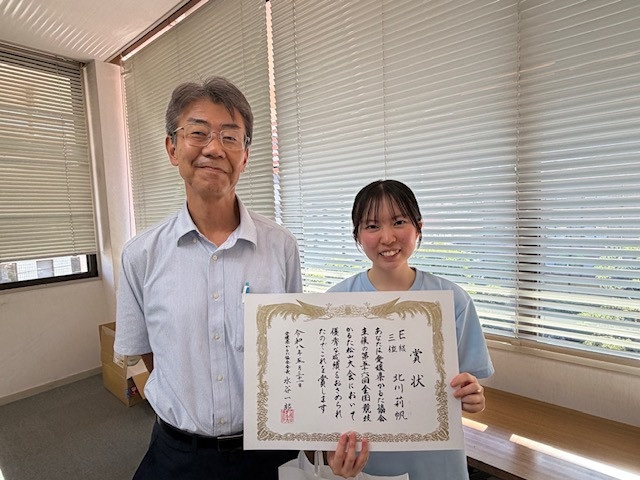 賞状
E級
三位 北川莉帆
あなたは愛媛県かるた協会
主催の第五十六回全国競技
かるた松山大会において
優秀な成績をおさめられ
たのでこれを賞します
令和八年五月三十一日
愛媛県かるた協会会長 水谷一郎